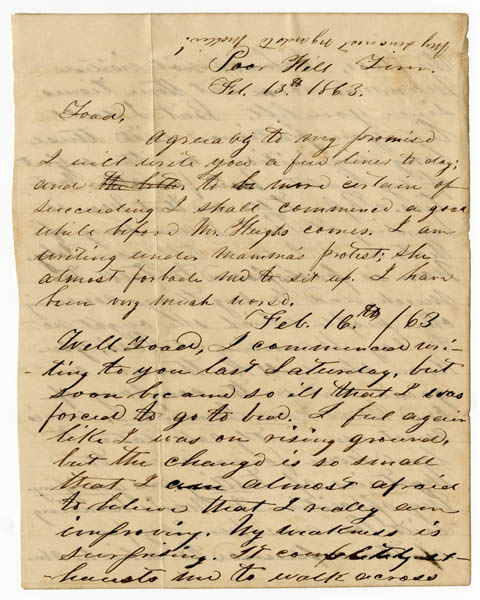 My sincerest regards to Mollie!
Poor Hill Tenn.
Feb. 13th. 1863.
Toad,
Agreeably to my promise
I will write you a few lines to day;
and the better to be more certain of
succeeding I shall commence a good
while before Mr. Hughs comes. I am
writing under Mamma's protest; she
almost forbade me to sit up. I have
been very much worse.
Feb. 16.th /63
Well Toad, I commenced wri-
-ting to you last Saturday, but
soon became so ill that I was
forced to go to bed. I feel again
like I was on rising ground,
but the change is so small
that I am almost afraid
to believe that I really am
improving. My weakness is
surprising. It completely ex-
hausts me to walk across